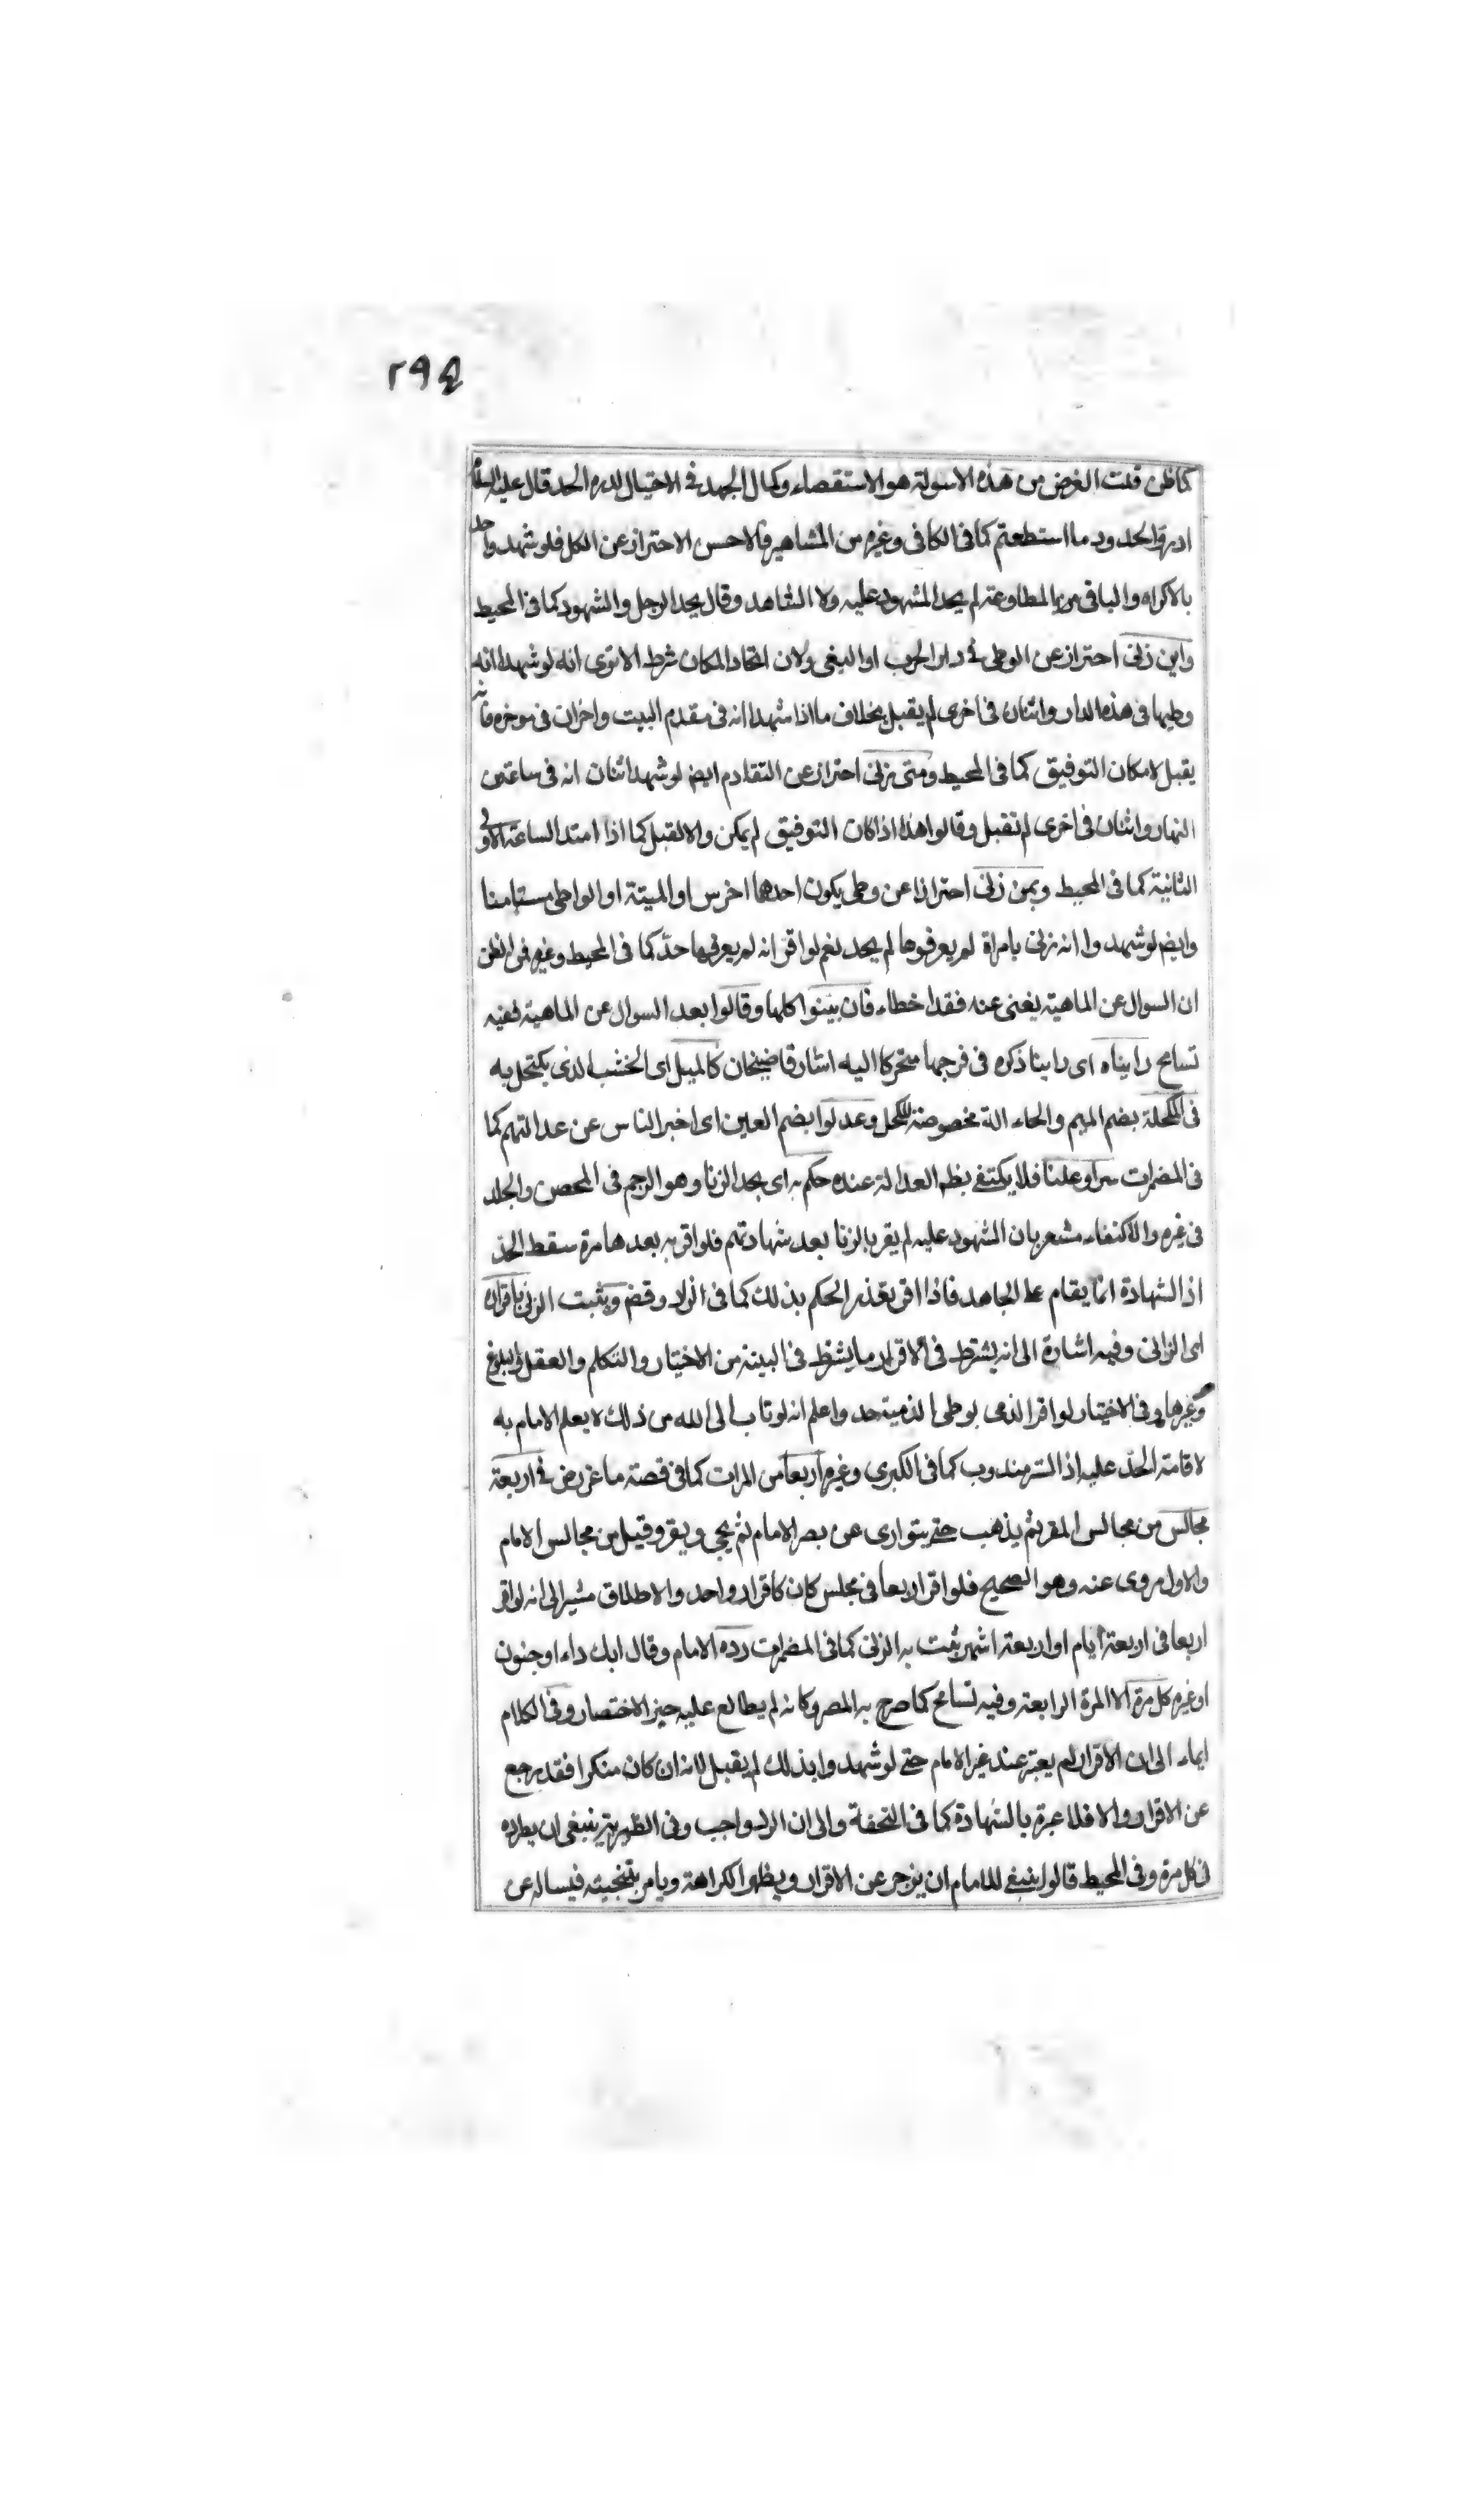 ٢٩٤
كما ظن قلت الغرض من هذه الاسولة هو الاستقصاء وكمال الجهد فى الاحتيال لدرء الحد قال عليه السلام
ادرؤا الحدود ما استطعتم كما فى الكافى وغيره من المشاهير فالاحسن الاحتراز عن الكل فلو شهد واحد
بالاكراه والباقى من المطاوعة لم يحد المشهود عليه ولا الشاهد وقال يحد الرجل والشهود كما فى المحيط
واين زنى احتراز عن الوطى فى دار الحرب او البغى ولان اتحاد المكان شرط الا ترى انه لو شهدا انه
وطيها فى هذه الدار واثنان فى اخرى لم يقبل بخلاف ما اذا شهدا انه فى مقدم البيت واخران فى موخره فانه
يقبل لامكان التوفيق كما فى المحيط ومتى زنى احتراز عن التقادم ايض لو شهد اثنان انه فى ساعة من
النهار واثنان فى اخرى لم تقبل وقالوا هذا اذا كان التوفيق لم يمكن والا لقبل كما اذا امتد الساعة الاولى
الثانية كما فى المحيط وبمن زنى احترازا عن وطى يكون احدهما اخرس او الميتة او الواطى مستامنا
وايض لو شهدوا انه زنى بامراة لم يعرفوها لم يحد نعم لو اقر انه لم يعرفها حدّ كما فى المحيط وغيره فمن الظن
ان السوال عن الماهية يغنى عنه فقد اخطاء فان بيّنوا كلها وقالوا بعد السوال عن الماهية ففيه
تسامح رايناه اى راينا ذكره فى فرجها متحركا اليه اشار قاضيخان كالميل اى الخشب الذى يكتحل به
فى المكحلة بضم الميم والحاء الة مخصوصة للكحل وعدلوا بضم العين اى اخبر الناس عن عدالتهم كما
فى المضمرات سرا وعلنا فلا يكتفى بظ العدالة عنده حكم به اى بحد الزنا وهو الرجم فى المحصن والجلد
فى غيره والاكتفاء مشعر بان الشهود عليه لم يقر بالزنا بعد شهادتهم فلو اقر به بعدها مرة سقط الحدّ
اذ الشهادة انما يقام على الجاحد فاذا اقر تعذر الحكم بذلك كما فى انزلاوقض ويثبت الزنى باقراره
اى الزانى وفيه اشارة الى انه يشترط فى الاقرار ما يشترط فى البينة من الاختيار والتكلم والعقل والبلوغ
وغيرها وفى الاختيار لو اقر الذمى بوطى الذمية حد واعلم انه لو تاب الى الله من ذلك لا يعلم الامام به
لاقامة الحدّ عليه اذ الستر مندوب كما فى الكبرى وغيره اربعا من المرات كما فى قصة ماعز رض فى اربعة
مجالس من مجالس المقر ثم يذهب حتى يتوارى عن بصر الامام ثم يجى ويقر وقيل من مجالس الامام
والاول مروى عنه وهو الصحيح فلو اقر اربعا فى مجلس كان كاقرار واحد والاطلاق مشير الى انه لو اقر
اربعا فى اربعة ايام او اربعة اشهر ثبت به الزنى كما فى المضمرات رده الامام وقال ابك داء او جنون
او غيره كل مرة الا المرة الرابعة وفيه تسامح كما صرح به المصر وكانه لم يطالع عليه حيز الاختصار وفى الكلام
ايماء الى ان الاقرار لم يعتبر عند غير الامام حتى لو شهدوا بذلك لم يقبل لانه ان كان منكرا فقد رجع
عن الاقرار والا فلا عبرة بالشهادة كما فى التحفة والى ان الرد واجب وفى الظهيرية ينبغى ان يطرده
فى كل مرة وفى المحيط قالوا ينبغى للامام ان يزجر عن الاقرار ويظهر الكراهة ويامر بتنحيته فيساله عن